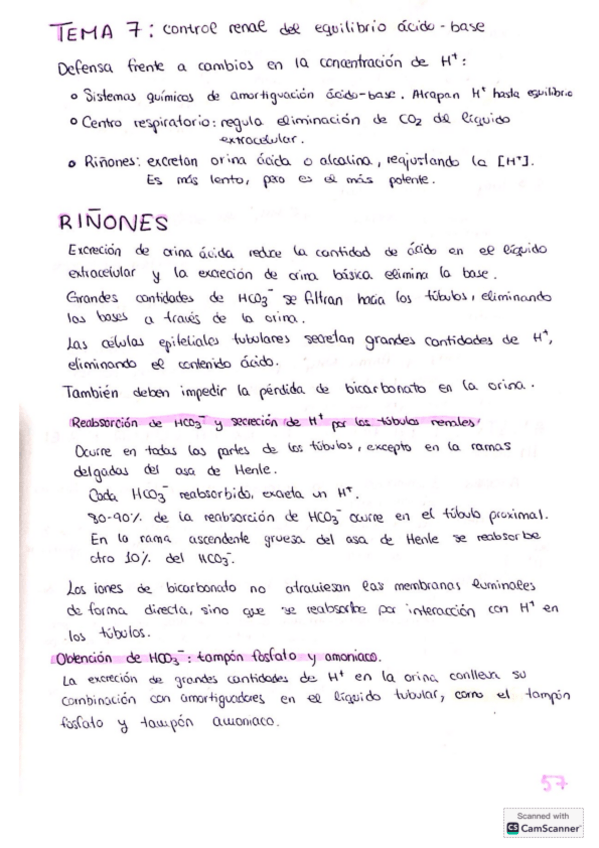 TEMA 7: control renal del equilibrio ácido-base
Defensa frente a cambios en la concentración de H⁺:
• Sistemas químicos de amortiguación ácido-base. Atrapan H⁺ hasta equilibrio
• Centro respiratorio: regula eliminación de CO₂ del líquido
extracelular.
• Riñones: excretan orina ácida o alcalina, reajustando la [H⁺].
Es más lento, pero es el más potente.
RIÑONES
Excreción de orina ácida reduce la cantidad de ácido en el líquido
extracelular y la excreción de orina básica elimina la base.
Grandes cantidades de HCO₃⁻ se filtran hacia los túbulos, eliminando
las bases a través de la orina.
Las células epiteliales tubulares secretan grandes cantidades de H⁺,
eliminando el contenido ácido.
También deben impedir la pérdida de bicarbonato en la orina.
Reabsorción de HCO₃⁻ y secreción de H⁺ por los túbulos renales
Ocurre en todas las partes de los túbulos, excepto en la ramas
delgadas del asa de Henle.
Cada HCO₃⁻ reabsorbido, excreta un H⁺.
80-90% de la reabsorción de HCO₃⁻ ocurre en el túbulo proximal.
En la rama ascendente gruesa del asa de Henle se reabsorbe
otro 10% del HCO₃⁻.
Los iones de bicarbonato no atraviesan las membranas luminales
de forma directa, sino que se reabsorbe por interacción con H⁺ en
los túbulos.
Obtención de HCO₃⁻: tampón fosfato y amoniaco.
La excreción de grandes cantidades de H⁺ en la orina conlleva su
combinación con amortiguadores en el líquido tubular, como el tampón
fosfato y tampón amoniaco.
57
Scanned with
CS CamScanner